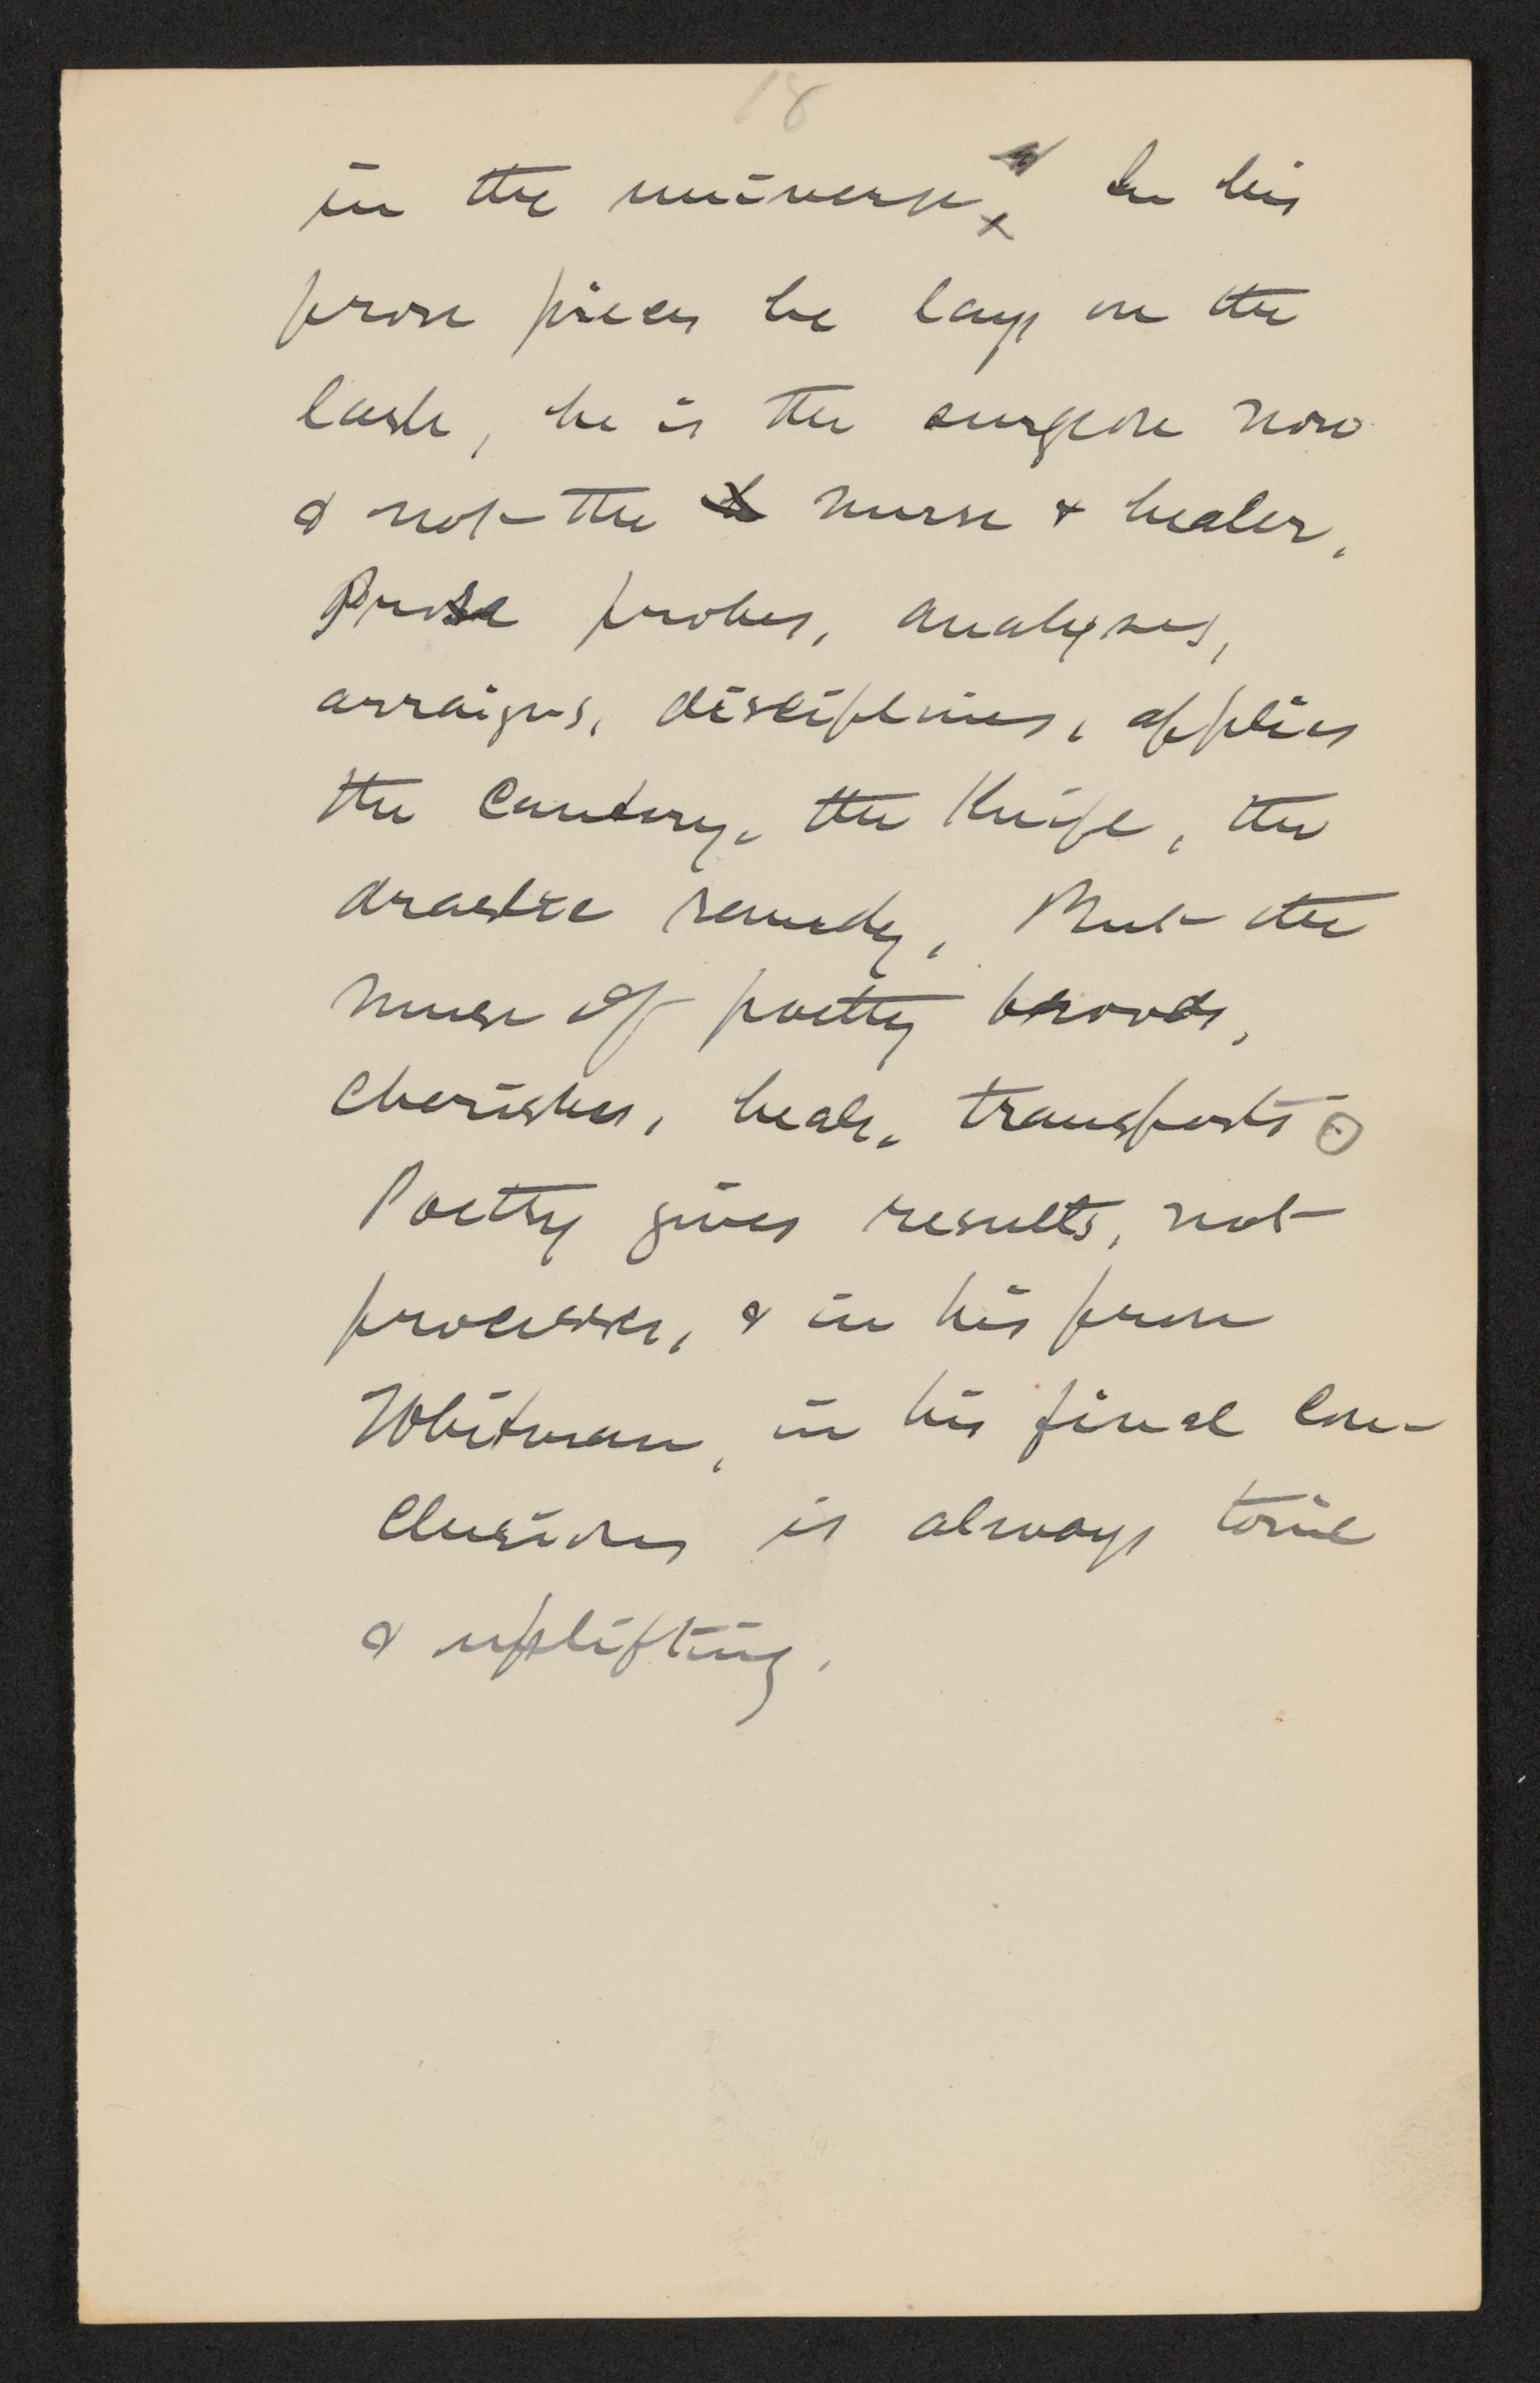 18
in the universe. In his
prose pieces he lays on the
lash, he is the surgeon now
& not the nurse & healer.
Prose probes, analyses,
arraigns, disciplines, applies
the cautery, the knife, the
drastic remedy. But the
muse of poetry broods,
cherishes, heals, transports.
Poetry gives results, not
processes, & in his prose
Whitman, in his final con-
clusions is always tonic
& uplifting.